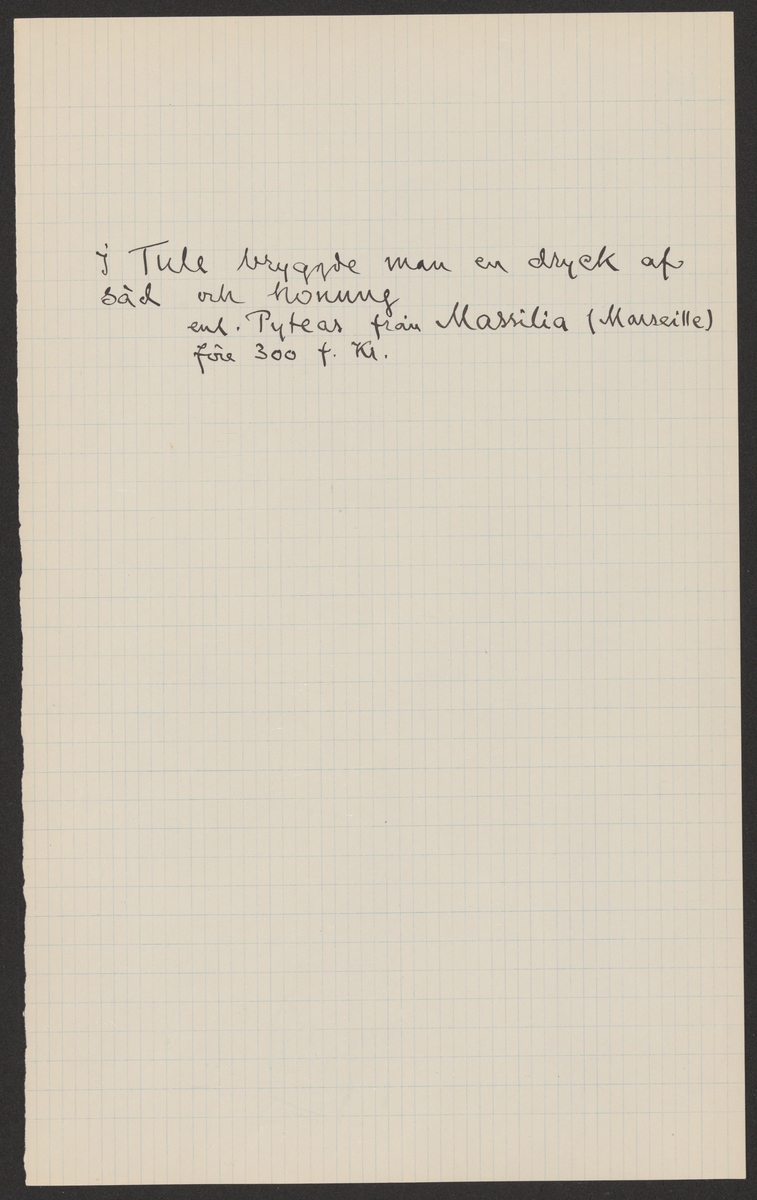 I Tule bryggde man en dryck af
säd och honung
enl. Pyteas från Massilia (Marseille)
före 300 f. Kr.